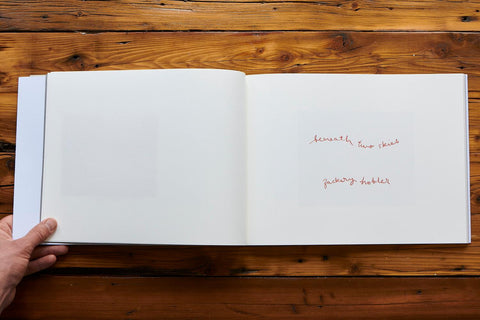 beneath two skies
zackery hobler